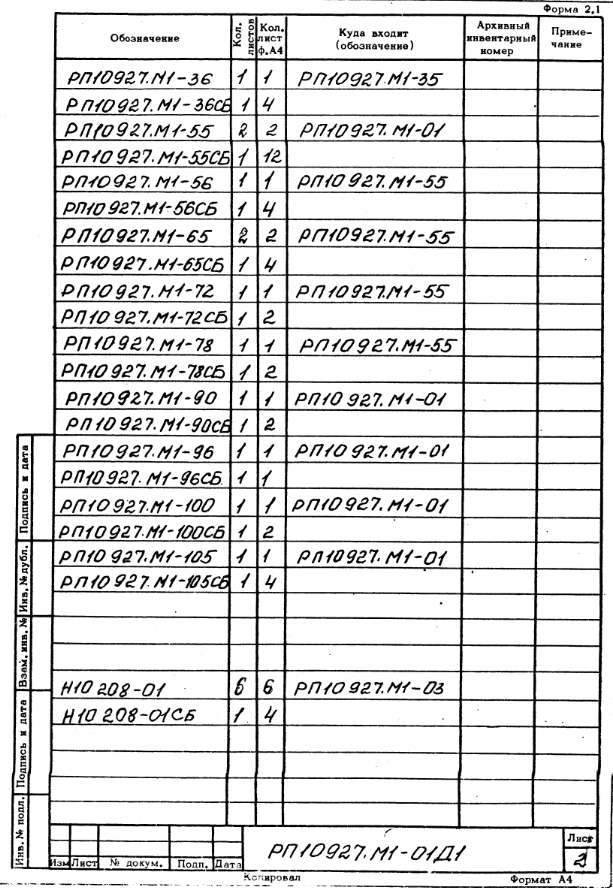 Форма 2.1
Обозначение Кол. листов Кол. лист ф.А4 Куда входит (обозначение) Архивный инвентарный номер Приме-чание
РП10927.М1-36 1 1 РП10927.М1-35
РП10927.М1-36СБ 1 4
РП10927.М1-55 2 2 РП10927.М1-01
РП10927.М1-55СБ 1 12
РП10927.М1-56 1 1 РП10927.М1-55
РП10927.М1-56СБ 1 4
РП10927.М1-65 2 2 РП10927.М1-55
РП10927.М1-65СБ 1 4
РП10927.М1-72 1 1 РП10927.М1-55
РП10927.М1-72СБ 1 2
РП10927.М1-78 1 1 РП10927.М1-55
РП10927.М1-78СБ 1 2
РП10927.М1-90 1 1 РП10927.М1-01
РП10927.М1-90СБ 1 2
РП10927.М1-96 1 1 РП10927.М1-01
РП10927.М1-96СБ 1 1
РП10927.М1-100 1 1 РП10927.М1-01
РП10927.М1-100СБ 1 2
РП10927.М1-105 1 1 РП10927.М1-01
РП10927.М1-105СБ 1 4
Н10208-01 6 6 РП10927.М1-03
Н10208-01СБ 1 4
Подпись и дата
Инв. № дубл.
Взам. инв. №
Подпись и дата
Инв. № подл.
Изм Лист № докум. Подп. Дата
РП10927.М1-01Д1
Лист
Копировал Формат А4